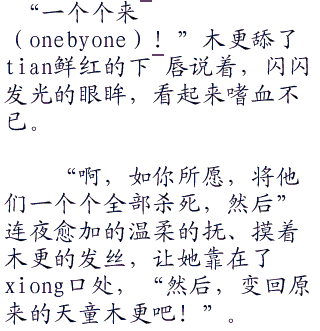 “一个个来ˉ
（onebyone）！”木更舔了
tian鲜红的下ˉ唇说着，闪闪
发光的眼眸，看起来嗜血不
已。
“啊，如你所愿，将他
们一个个全部杀死，然后”
连夜愈加的温柔的抚、摸着
木更的发丝，让她靠在了
xiong口处，“然后，变回原
来的天童木更吧！”。